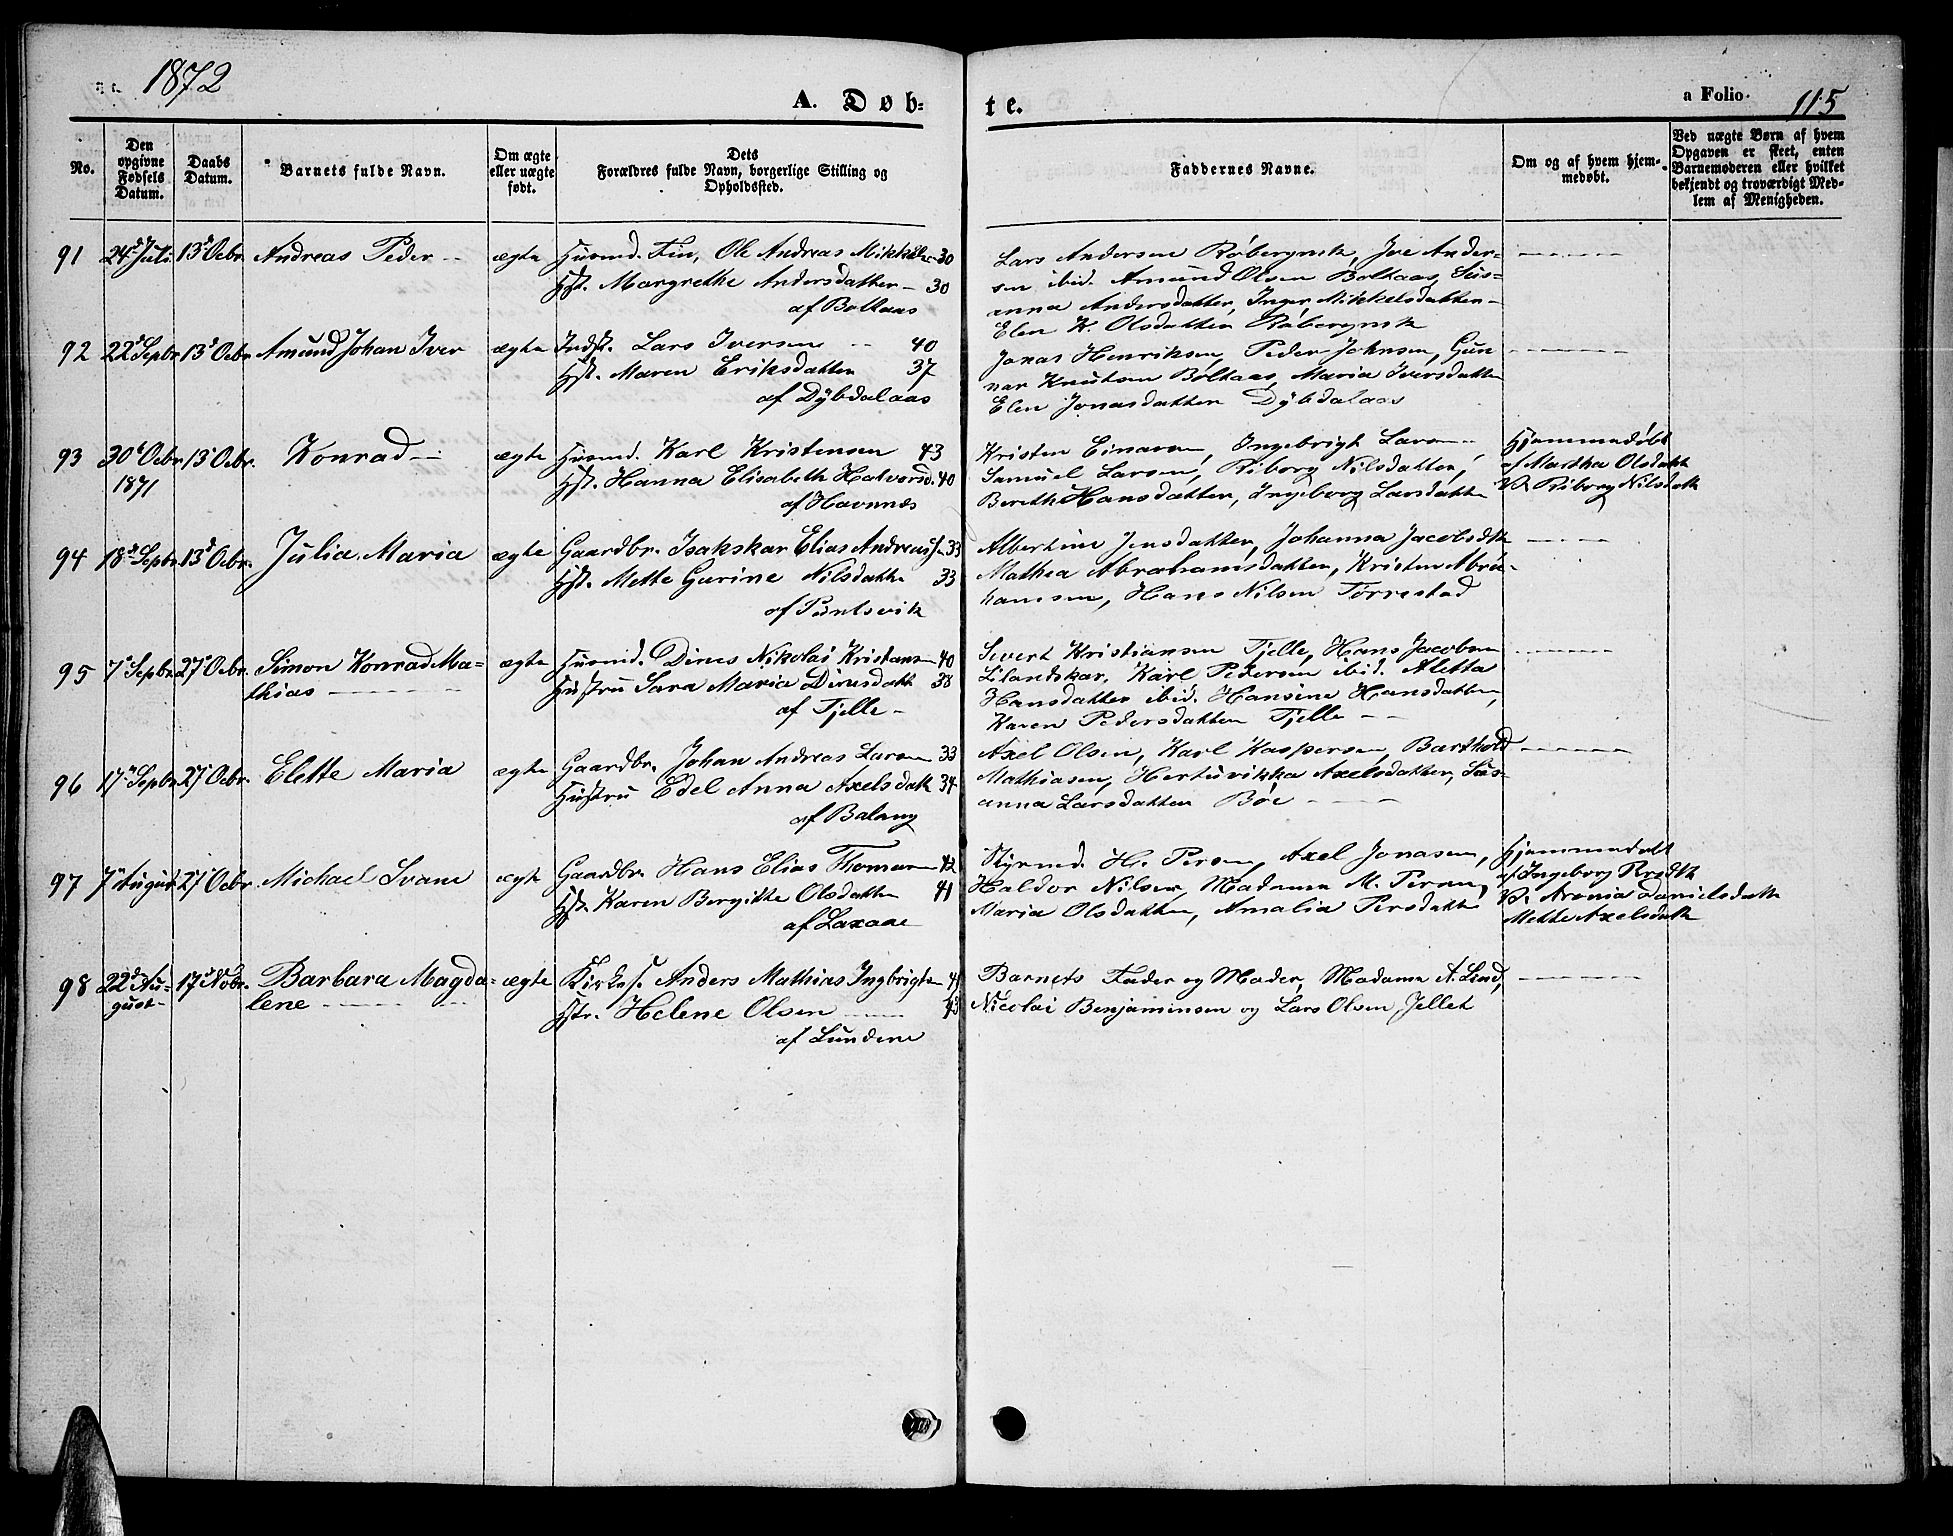 1872
A. Døb-
te.
a Folio. 115
No.
Den opgivne Fødsels Datum.
Daabs Datum.
Barnets fulde Navn.
Om ægte eller uægte født.
Dets
Forældres fulde Navn, borgerlige Stilling og
Opholdssted.
Faddernes Navne.
Om og af hvem hjem-
medøbt.
Ved uægte Børn af hvem
Opgaven er skeet, enten
Barnemoderen eller hvilket
bekjendt og troværdigt Med-
lem af Menigheden.
91 24de Juli 13de Ocbr. Andreas Peder ægte Husmd. Fin, Ole Andreas Mikkels. 30
Hst. Margrethe Andersdatter 30
af Boltaas
Lars Andersen Røbergnsk, Joe Ander-
sen ibid. Amund Olsen Boltaas, Sus-
anna Andersdatter, Inger Mikkelsdatter
Elen K. Olsdatter Røbergnsk
92 22de Sepbr. 13de Ocbr. Amund Johan Iver ægte Indst. Lars Iversen 40
Hst. Maren Eriksdatter 37
af Dybdalaas
Jonas Henriksen, Peder Johnsen, Gun
nar Knutsen Boltaas, Maria Iversdatter
Elen Jonasdatter Dybdalaas
93 30de Ocbr. 13de Ocbr. Konrad ægte Husmd. Karl Kristensen 43
1871
Hst. Hanna Elisabeth Halvorsd. 40
af Havnnæs
Kristen Einarsen, Ingebrigt Larsen
Samuel Larsen, Riborg Nilsdatter,
Bereth Hansdatter, Ingeborg Larsdatter
Hjemmedøbt
af Martha Olsdatt
V. Riborg Nilsdatt
94 18de Sepbr. 13de Ocbr. Julia Maria ægte Gaardbr. Isakskar Elias Andreass. 33
Hst. Mette Gurine Nilsdatter 33
af Puntsvik
Albertine Jensdatter, Johanna Jacobsdtr
Mathea Abrahamsdatter, Kristen Abra-
hamsen, Hans Nilsen Torrestad
95 7de Sepbr. 27de Ocbr. Simon Konrad Ma- ægte Husmd. Dines Nikolai Kristians. 40
thias
Hustru Sara Maria Dinesdatt 38
af Tjelle
Sivert Kristiansen Tjelle, Hans Jacobsen
Lilandskar, Karl Pedersen ibid. Aletta
Hansdatter ibid. Hansine Hansdatter,
Karen Pedersdatter Tjelle
96 17de Sepbr. 27de Ocbr. Elette Maria ægte Gaardbr. Johan Andreas Larsen 33
Hustru Edel Anna Axelsdatt 34
af Balang
Axel Olsen, Karl Kaspersen, Barthold
Mathiasen, Hertuvikka Axelsdatter, Sus-
anna Larsdatter Bøe
97 7de August 27de Ocbr. Michael Svane ægte Gaardbr. Hans Elias Thomasen 42
Hst. Karen Bergitte Olsdatter 41
af Laxaae
Styrmd. H. Persen, Axel Jonasen,
Haldor Nilsen, Madame M. Persen,
Maria Olsdatter, Amalia Persdatter
Hjemmedøbt
af Ingeborg Prsdtr
V. Aronia Danielsdatt
Mette Axelsdatt
98 22de Au- 17de Nobr. Barbara Magda- ægte Kirkes. Anders Mathias Ingbrigtsen 41
gust lene
Hstr. Helene Olsen 43
af Lundene
Barnets Fader og Moder, Madame A. Lind,
Nicolai Benjaminsen og Lars Olsen Jellet